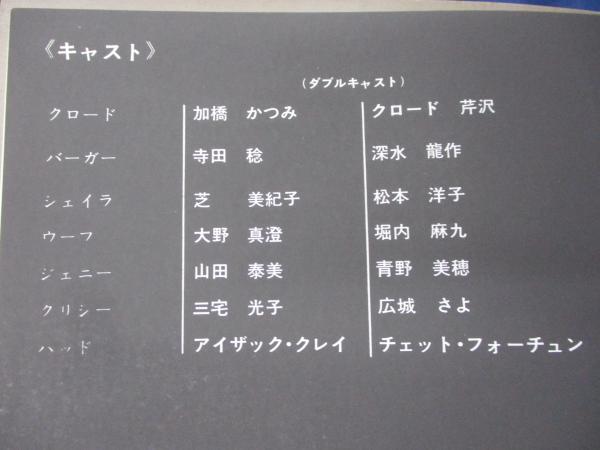 《キャスト》
(ダブルキャスト)
クロード 加橋 かつみ クロード 芹沢
バーガー 寺田 稔 深水 龍作
シェイラ 芝 美紀子 松本 洋子
ウーフ 大野 真澄 堀内 麻九
ジェニー 山田 泰美 青野 美穂
クリシー 三宅 光子 広城 さよ
ハッド アイザック・クレイ チェット・フォーチュン